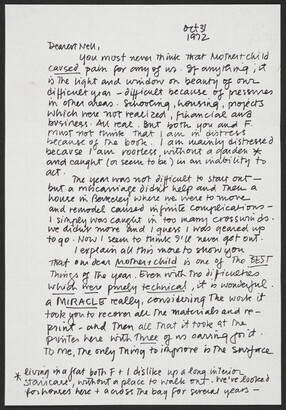 Oct 31
1972
Dearest Nell,
You must never think that Mother & child
caused pain for any of us. If anything, it
is the light and window on beauty of our
difficult year – difficult because of pressures
in other areas. Schooling, housing, projects
which were not realized, financial and
business. All real. But both you and F.
must not think that I am in distress
because of the book. I am mainly distressed
because I am rootless, without a garden *
and caught (or seem to be) in an inability to
act.
The year was not difficult to start out –
but a miscarriage didn't help and then a
house in Berkeley where we were to move
and remodel caused infinite complications –
I simply was caught in too many crosswinds.
We didn't move and I guess I was geared up
to go. Now I seem to think I'll never get out.
I explain all this more to show you
that our dear Mother & child is one of the BEST
things of the year. Even with the difficulties
which were purely technical, it is wonderful.
a MIRACLE really, considering the work it
took you to recover all the materials and re-
print – and then all that it took at the
printer here with three of us caring for it.
To me, the only thing to improve is the surface
* living in a flat both F + I dislike up a long interior
staircase, without a place to walk out. We've looked
for houses here + across the bay for several years –